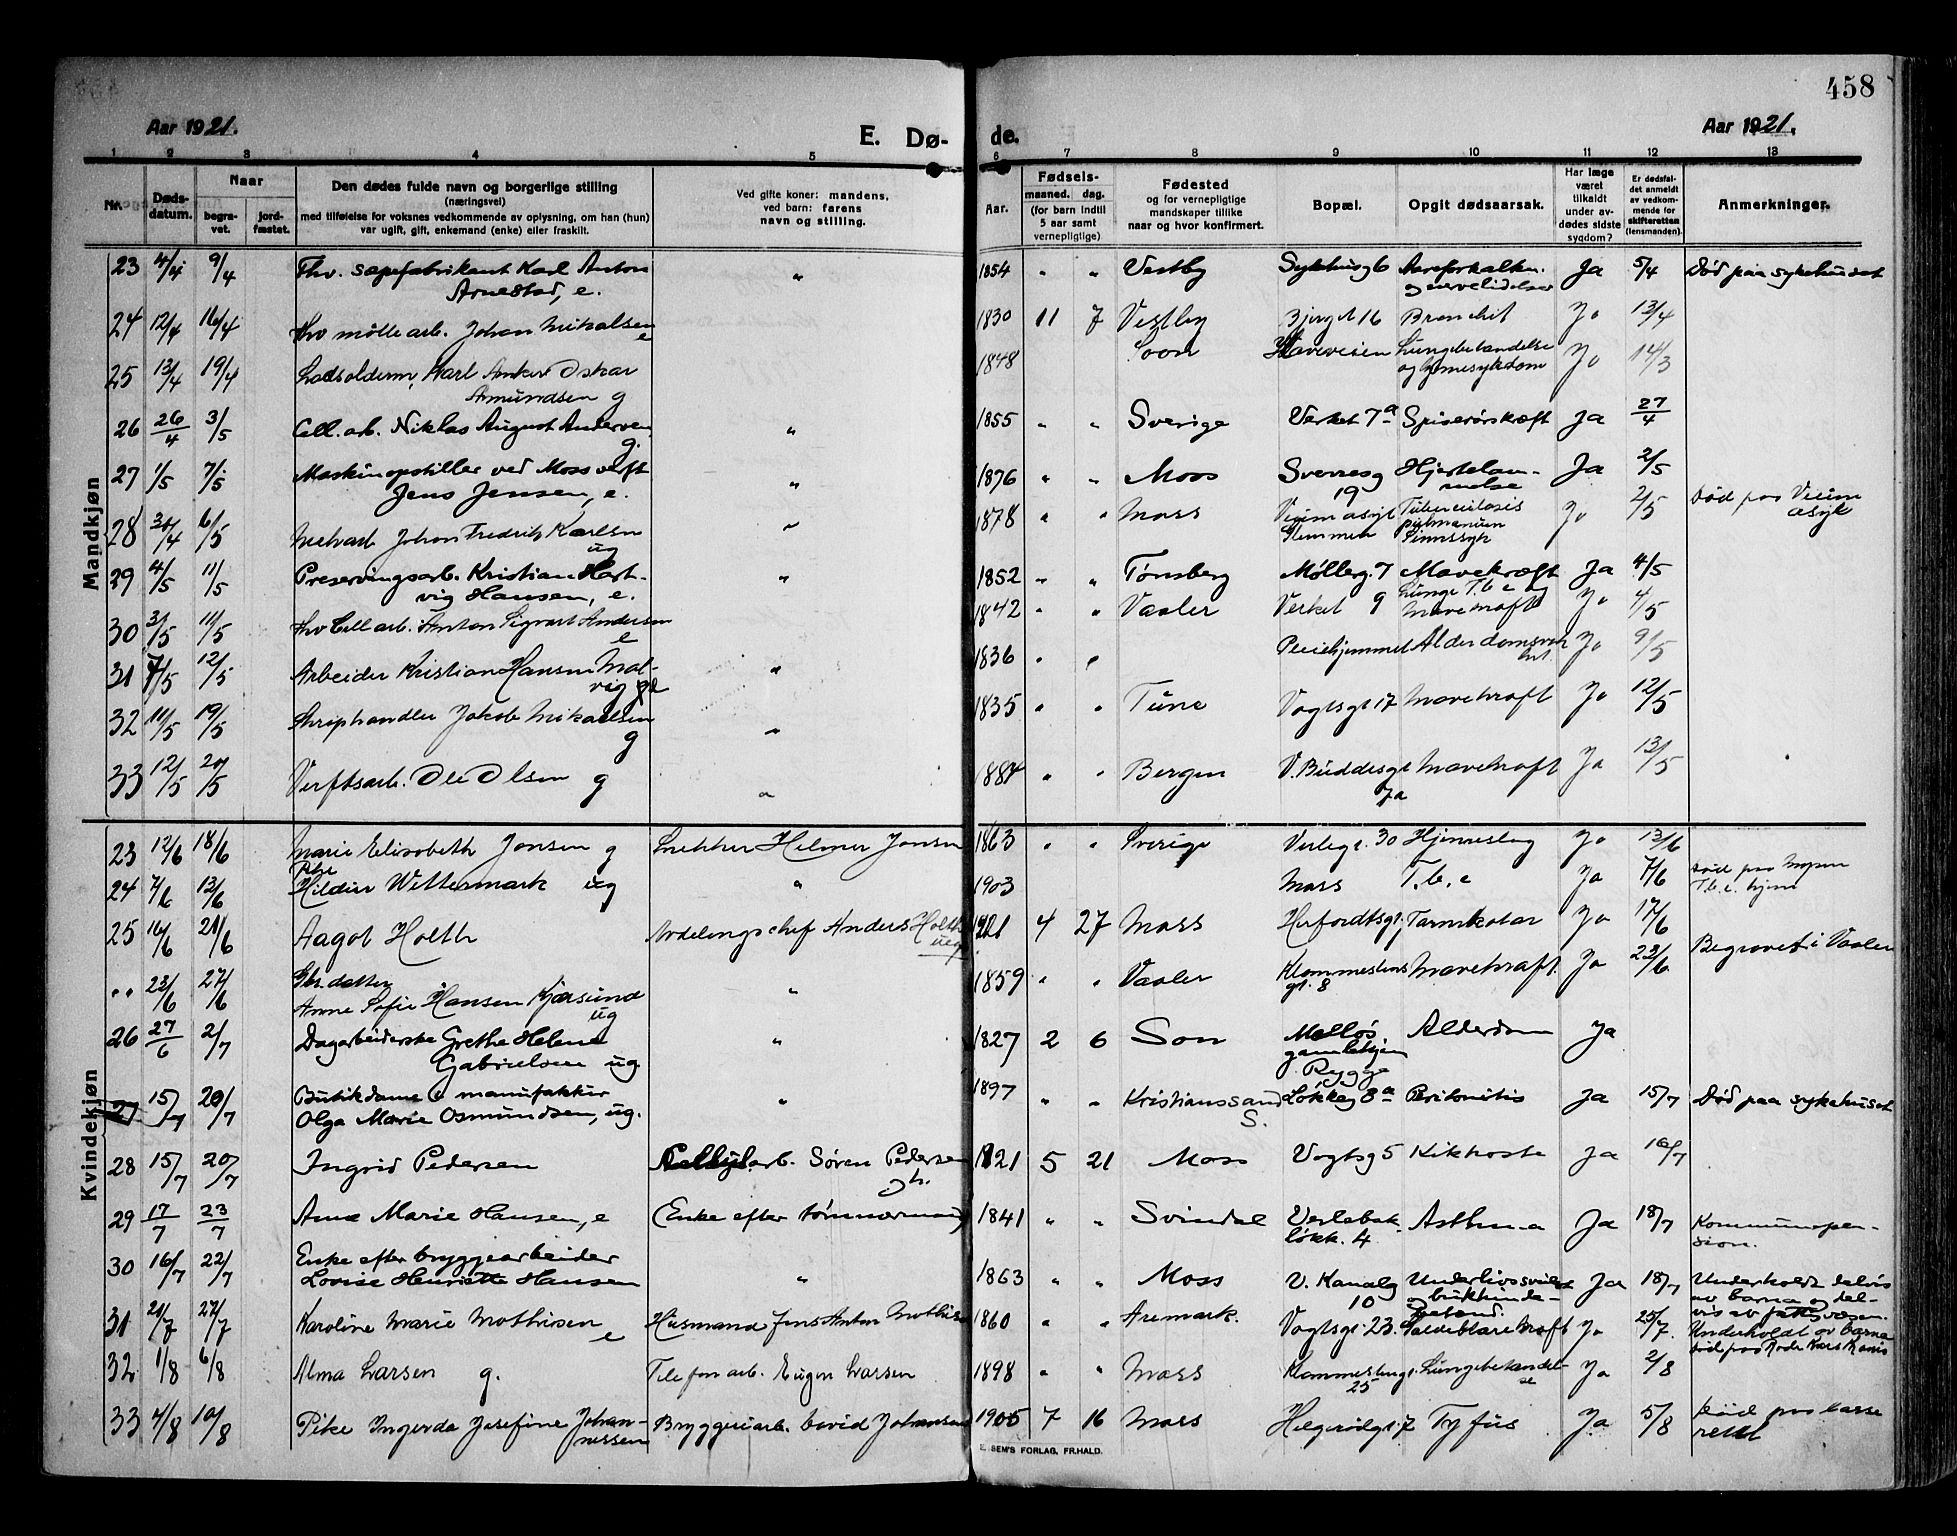 458
Aar 1921.
E. Dø-
de.
Aar 1921.
1 2 3 4 5 6 7 8 9 10 11 12 13
Nr.
Døds-
datum.
Naar
begra-
vet.
jord-
fæstet.
Den dødes fulde navn og borgerlige stilling
(næringsvei)
med tilføielse for voksnes vedkommende av oplysning, om han (hun)
var ugift, gift, enkemand (enke) eller fraskilt.
Ved gifte koner: mandens,
ved barn: farens
navn og stilling.
Aar.
Fødsels-
maaned. dag.
(for barn indtil
5 aar samt
vernepligtige)
Fødested
og for vernepligtige
mandskaper tillike
naar og hvor konfirmert.
Bopæl.
Opgit dødsaarsak.
Har læge
været
tilkaldt
under av-
dødes sidste
sygdom?
Er dødsfal-
det anmeldt
av vedkom-
mende for
skifteretten
(lensmanden).
Anmerkninger.
Mandkjøn
23 4/4 9/4 Fhv. sæpefabrikant Karl Anton " 1854 " " Vestby Sykehusg 6 Aareforkalkn. Ja 5/4 Død paa sykehuset
Arnestad, e. og nervelidelser
24 12/4 16/4 Fhv mølle arb. Johan Mikalsen 1830 11 7 Vestby Bjerget 16 Bronchit Ja 13/4
e
25 13/4 19/4 Lodsolderm. Karl Anker Oskar 1848 Soon Haveveien Lungebetændelse Ja 14/3
Amundsen g og
26 26/4 3/5 Cell. arb. Niklas August Andersen " 1855 " " Sverige Verket 7a Spiserørskræft Ja 27/4
g.
27 1/5 7/5 Maskinopstiller ved Moss verft " 1876 " " Moss Sverresg Hjertelam- Ja 2/5
Jens Jensen, e. 19 melse
28 30/4 6/5 Johan Fredrik Karlsen " 1878 " " Moss Veum asyl Tuberculosis Ja 2/5 Død paa Veum
ug Glemmen pulmonum asyl
Sinnssyk
29 4/5 11/5 Preservingsarb. Kristian Hart- " 1852 " " Tønsberg Møllerg. 7 Mavekræft Ja 4/5
vig Hansen, e.
30 3/5 11/5 Fhv Cell arb. Anton Sigvart Andersen 1842 " " Vaaler Verket 9 Lunge T.b.c og Ja 4/5
e Mavekræft
31 7/5 12/5 Arbeider Kristian Hansen Mol- " 1836 " " Pleiehjemmet Alderdomsvak Ja 9/5
vig
32 11/5 19/5 Skriphandler Jakob Mikaelsen " 1835 " " Tune Vogtsgt 17 Mavekræft Ja 12/5
g
33 12/5 20/5 Verftsarb. Ole Olsen g " 1884 " " Bergen V. Buddesgt Mavekræft Ja 13/5
7a
Kvindekjøn
23 12/6 18/6 Marie Elisabeth Jonsen g Snekker Helmer Jonsen 1863 " " Sverige Verlegt. 30 Hjerneslag Ja 13/6
24 7/6 13/6 Pike " 1903 Moss T.b.c Ja 7/6 Død paa Mosson
Hildur Wettermark ug T.b.c. hjem
25 16/6 21/6 Aagot Holth Avdelingschef Anders Holth 1921 4 27 Moss Herfordtsgt. Tarmkatar Ja 17/6
" 23/6 27/6 Gbr.datter " 1859 " " Vaaler Klommestens Mavekræft. Ja 23/6 Begravet i Vaaler
Anne Sofie Hansen Kjærsund gt. 8
ug
26 27/6 2/7 Dagarbeiderske Grethe Helene " 1827 2 6 Son Melløs Alderdom Ja
Gabrielsen ug. gamlehjem
Rygge
27 15/7 20/7 Butikdame i manufaktur " 1897 " " Kristianssand Løkkeg 8a Peritonitis Ja 15/7 Død paa sykehuset
Olga Marie Osmundsen, ug. S.
28 15/7 20/7 Ingrid Pedersen Søren Pedersen 1921 5 21 Moss Vogtsg 5 Kikhoste Ja 16/7
29 17/7 23/7 Anne Marie Hansen, e (Enke efter tømmermand) 1841 " " Svindal Verlebak- Asthma Ja 18/7 Kommunepen-
løkk. 4 sion.
30 16/7 22/7 Enke efter bryggearbeider " 1863 " " Moss V. Kanalg Underlivssvulst Ja 18/7 Underholdt delvis
Lovise Henriette Hansen 10 og bukhinde- av barna og del-
betænd. vis av fattigvæsen.
31 21/7 27/7 Karoline Marie Mathisen Husmand Jens Anton Mathisen 1860 " " Aremark. Vogtsgt. 23. Galdeblærekræft Ja 25/7. Underholdt av barna
e Død paa Røde Kors Klinik
32 1/8 6/8 Alma Larsen g. Telefon arb. Eugen Larsen 1898 " " Moss Klommestensgt. Lungebetændel- Ja 2/8
25 se
33 4/8 10/8 Pike Ingerda Josefine Johan- Bryggeriarb. David Johansen 1905 7 16 Moss Helgerødgt. 7 Tyfus Ja 5/8 Død paa Lasa
nessen rettet
E. SEM'S FORLAG, FR.HALD.